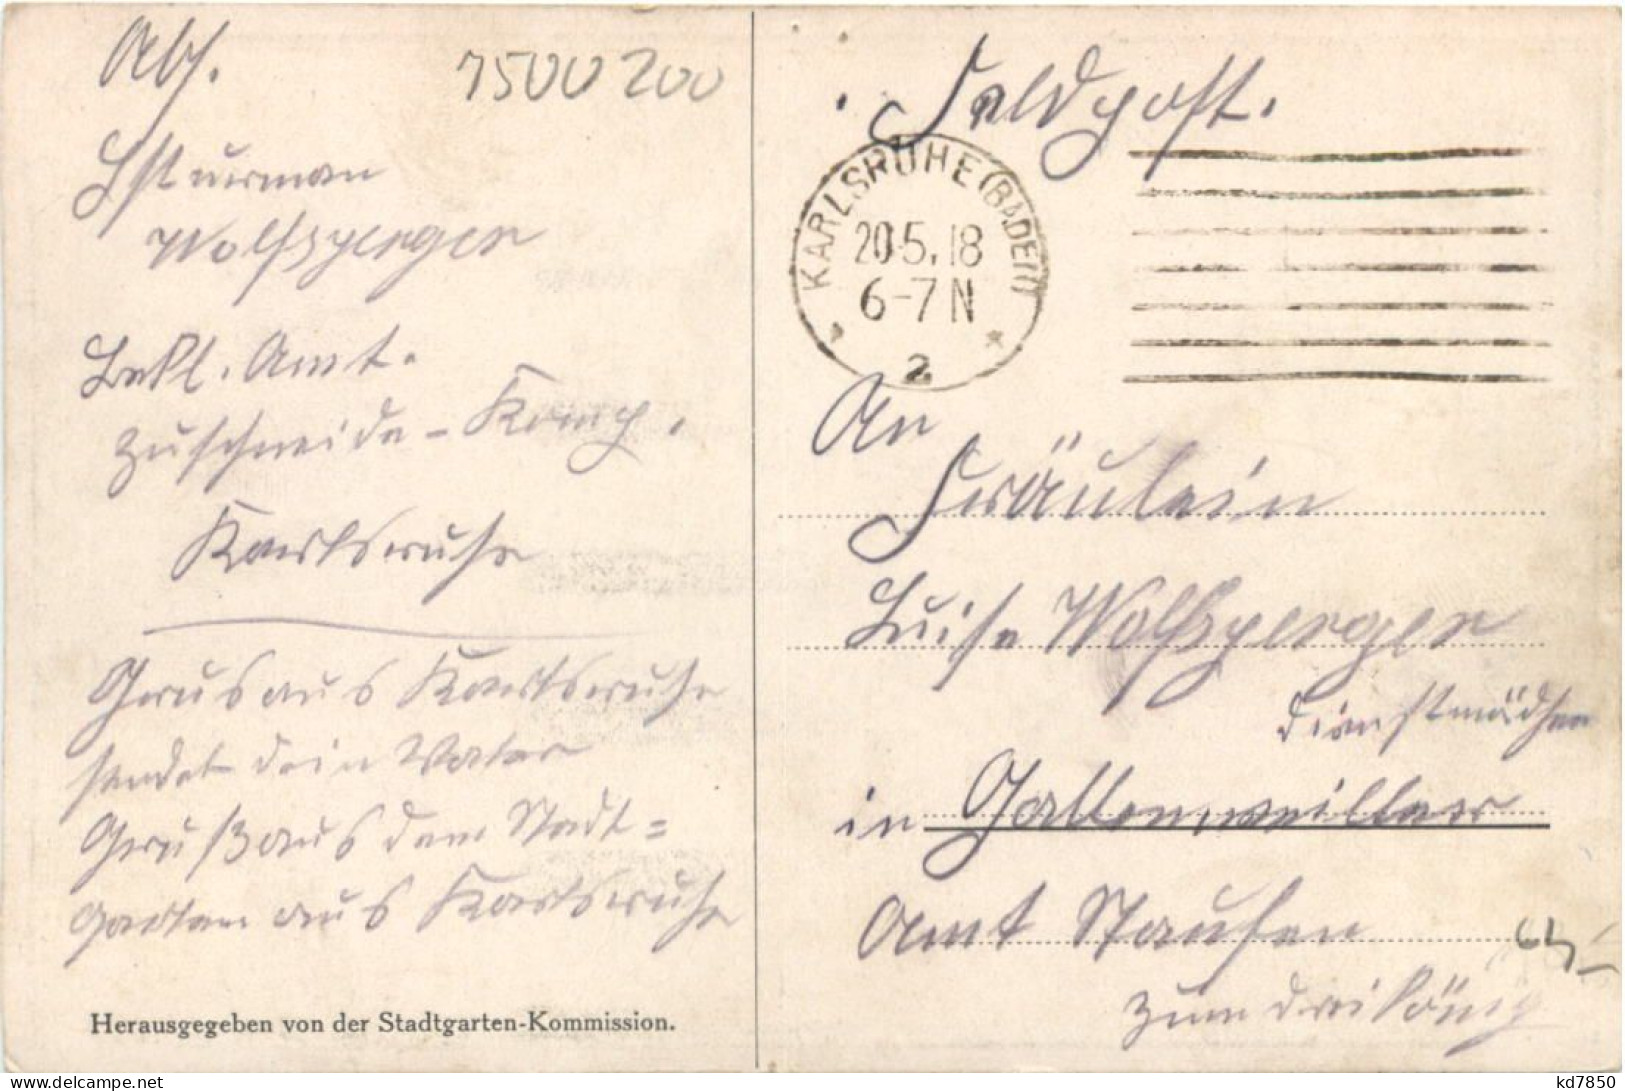 Abs.
7500 200
Lsturman
Wolfsperger
Bekl. Amt.
Zuschneide-Komp.
Karlsruhe
Grus aus Karlsruhe
sendet dein Vater
Gruß aus dem Stadt=
garten aus Karlsruhe
Herausgegeben von der Stadtgarten-Kommission.
Feldpost.
KARLSRUHE (BADEN)
20.5.18
6-7 N
2
An
Fräulein
Luise Wolfsperger
Dienstmädchen
in Gallenweiller
Amt Staufen
zum dreikönig
kd7850